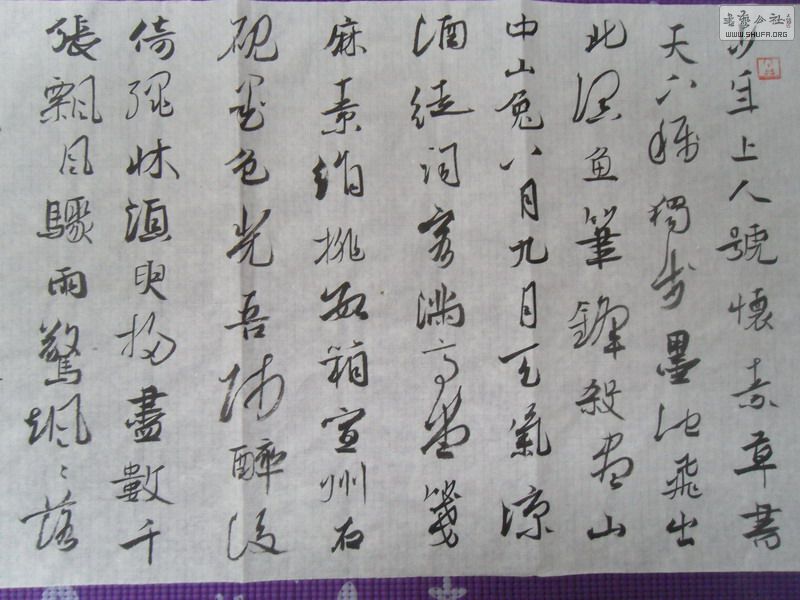 書藝公社
WWW.SHUFA.ORG
少年上人號懷素草書
天下稱獨步墨池飛出
北溟魚筆鋒殺盡山
中山兔八月九月天氣涼
酒徒詞客滿高堂箋
麻素絹排數箱宣州石
硯墨色光吾師醉後
倚繩牀須臾掃盡數千
張飄風驟雨驚颯〻落